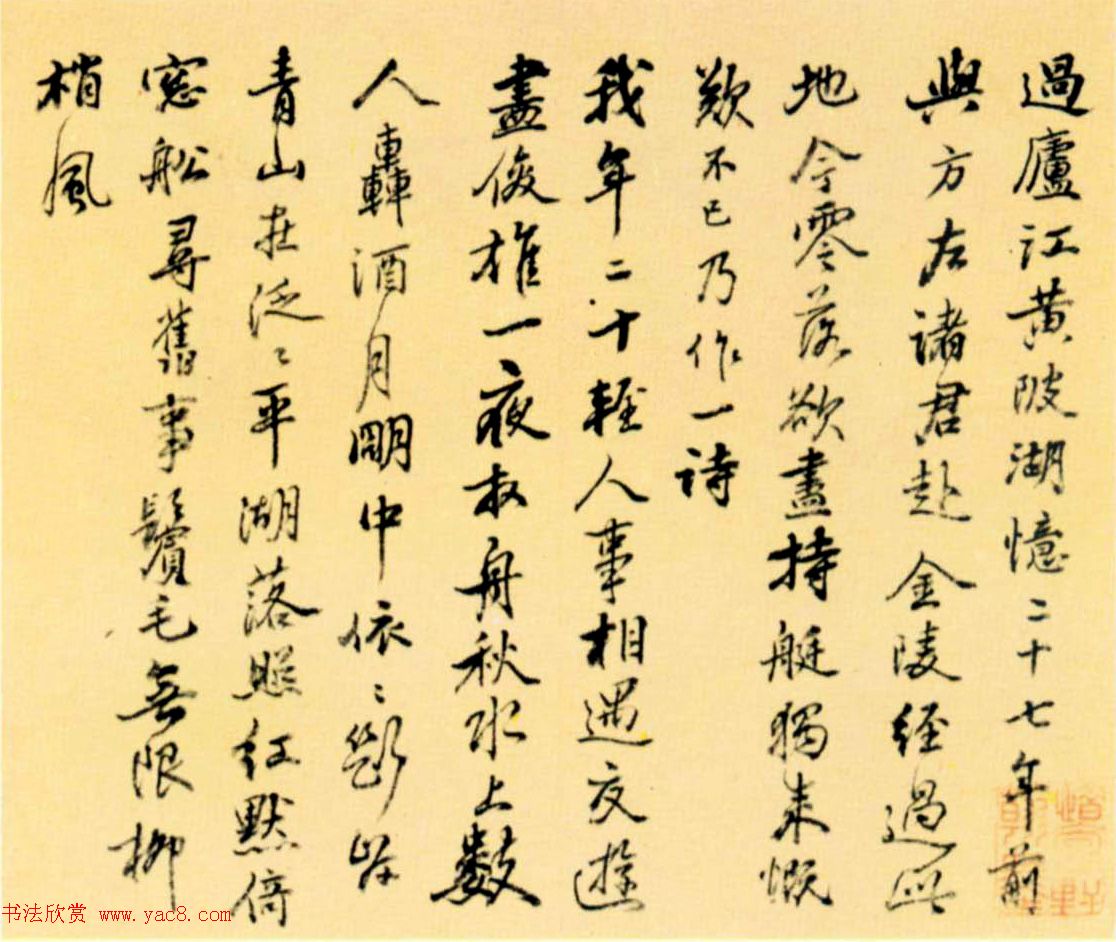 過廬江黃陂湖憶二十七年前
與方左諸君赴金陵經過此
地今零落欲盡持艇獨來慨
歎不已乃作一詩
我年二十輕人事相遇交遊
盡俊雄一夜放舟秋水上數
人轟酒月明中依〻
青山在泛〻平湖落照紅默倚
窓船尋舊事鬢毛無限柳
梢風
书法欣赏 www.yac8.com